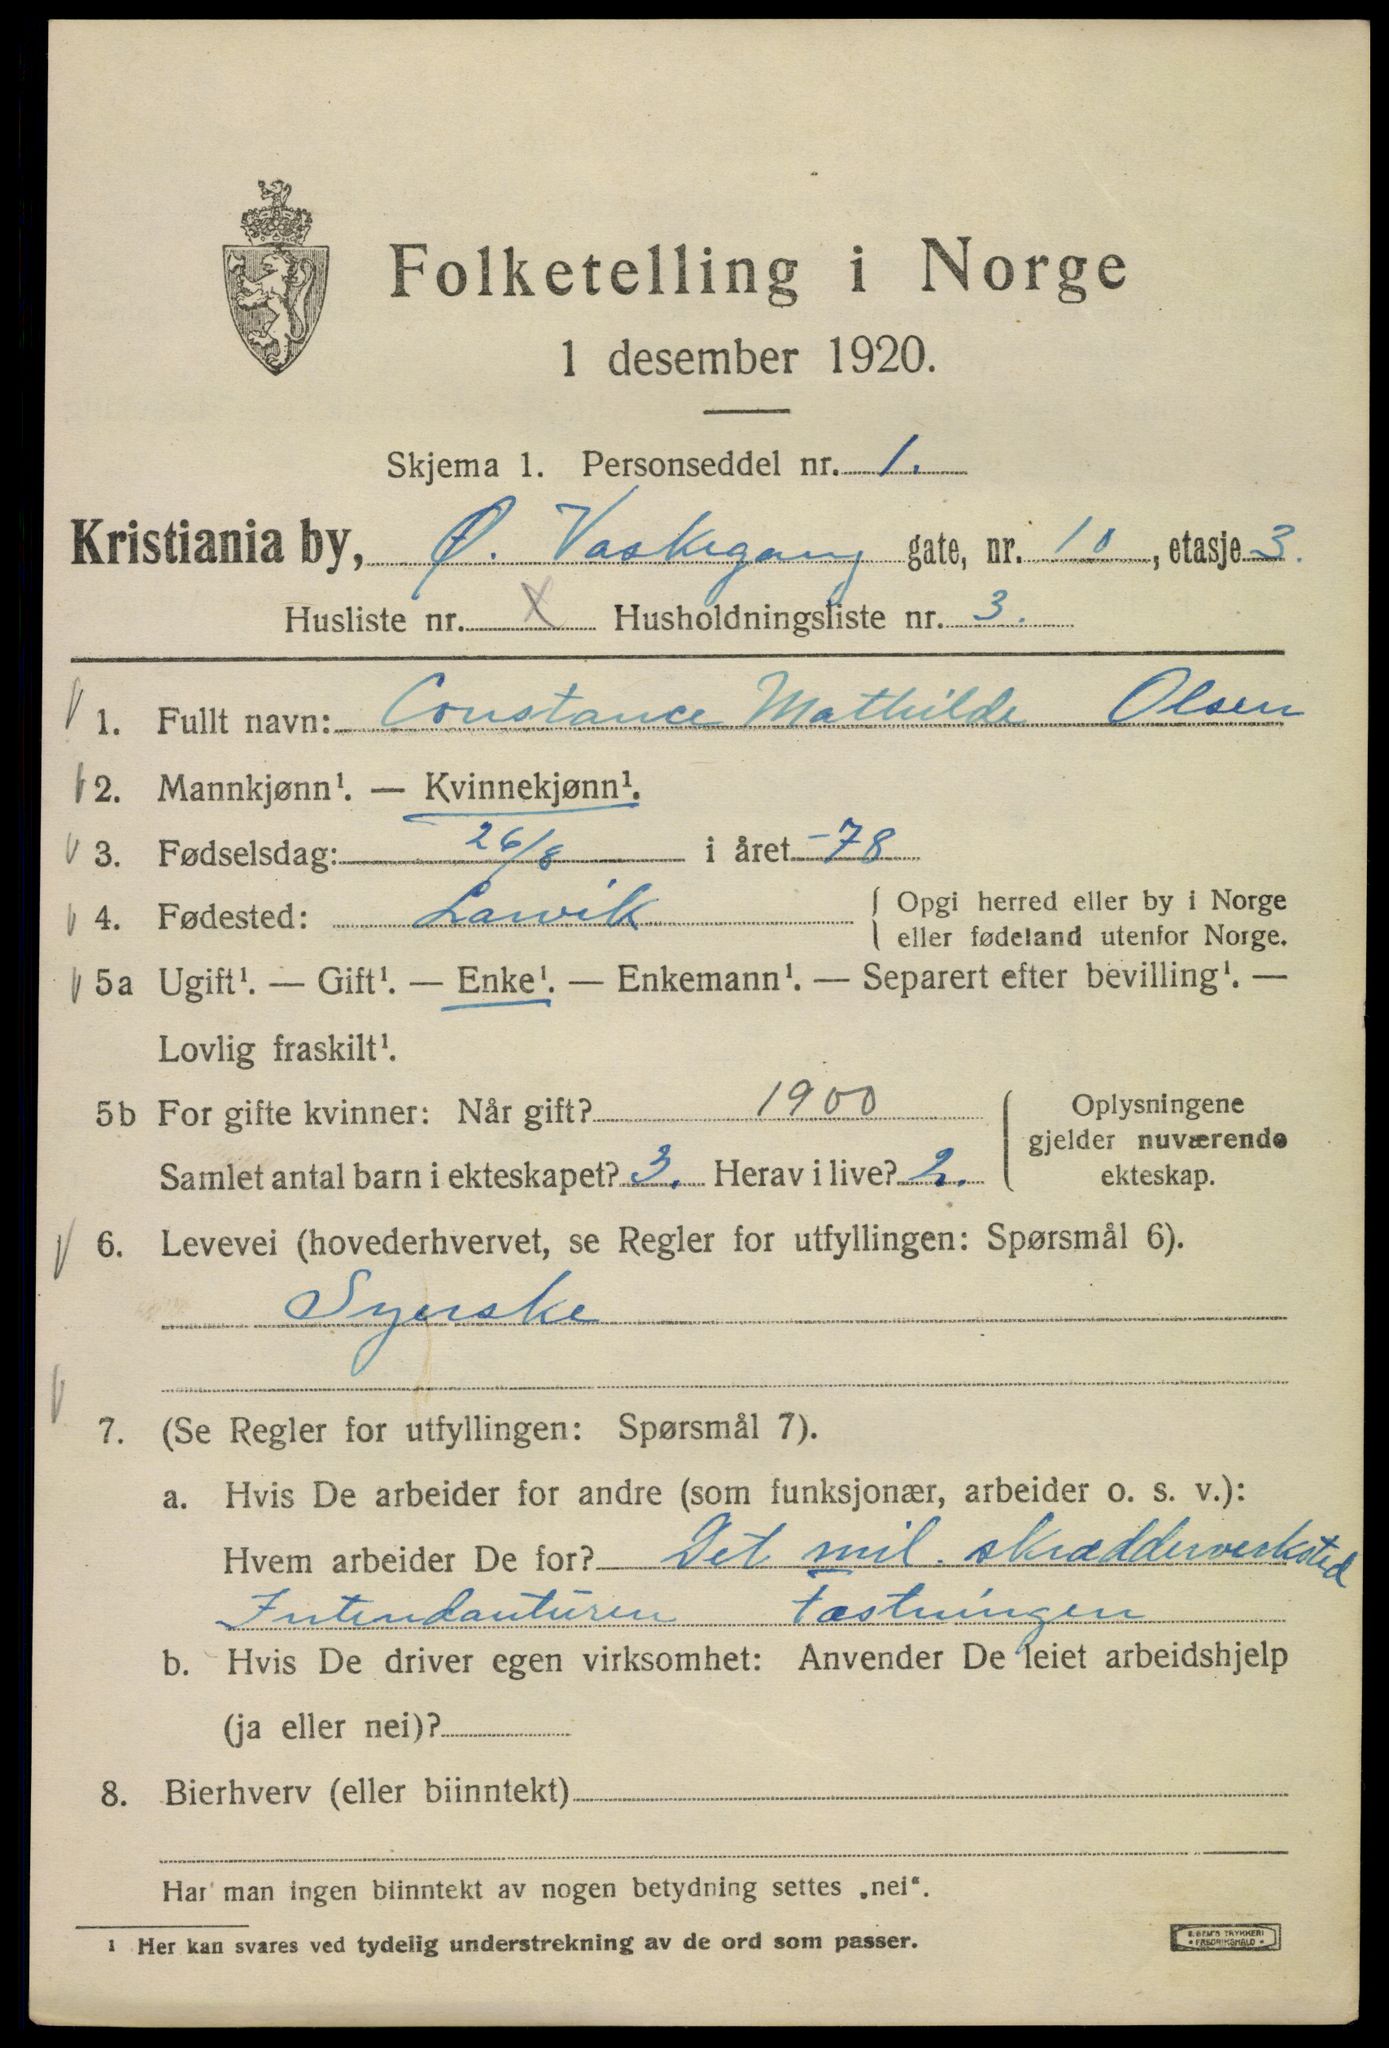 Folketelling i Norge
1 desember 1920.
Skjema 1. Personseddel nr. 1.
Kristiania by, Ø. Vaskegang gate, nr. 10, etasje 3.
Husliste nr. X Husholdningsliste nr. 3.
1. Fullt navn: Constance Mathilde Olsen
2. Mannkjønn¹. — Kvinnekjønn¹.
3. Fødselsdag: 26/8 i året -78
4. Fødested: Larvik { Opgi herred eller by i Norge
eller fødeland utenfor Norge.
5a Ugift¹. — Gift¹. — Enke¹. — Enkemann¹. — Separert efter bevilling¹. —
Lovlig fraskilt¹.
5b For gifte kvinner: Når gift? 1900
Samlet antal barn i ekteskapet? 3. Herav i live? 2.
Oplysningene
gjelder nuværende
ekteskap.
6. Levevei (hovederhvervet, se Regler for utfyllingen: Spørsmål 6).
Syerske
7. (Se Regler for utfyllingen: Spørsmål 7).
a. Hvis De arbeider for andre (som funksjonær, arbeider o. s. v.):
Hvem arbeider De for? Det mil. skrædderverksted
Intendanturen Fæstningen
b. Hvis De driver egen virksomhet: Anvender De leiet arbeidshjelp
(ja eller nei)?
8. Bierhverv (eller biinntekt)
Har man ingen biinntekt av nogen betydning settes „nei“.
¹ Her kan svares ved tydelig understrekning av de ord som passer.
E. SEM'S TRYKKERI
• FREDRIKSHALD •